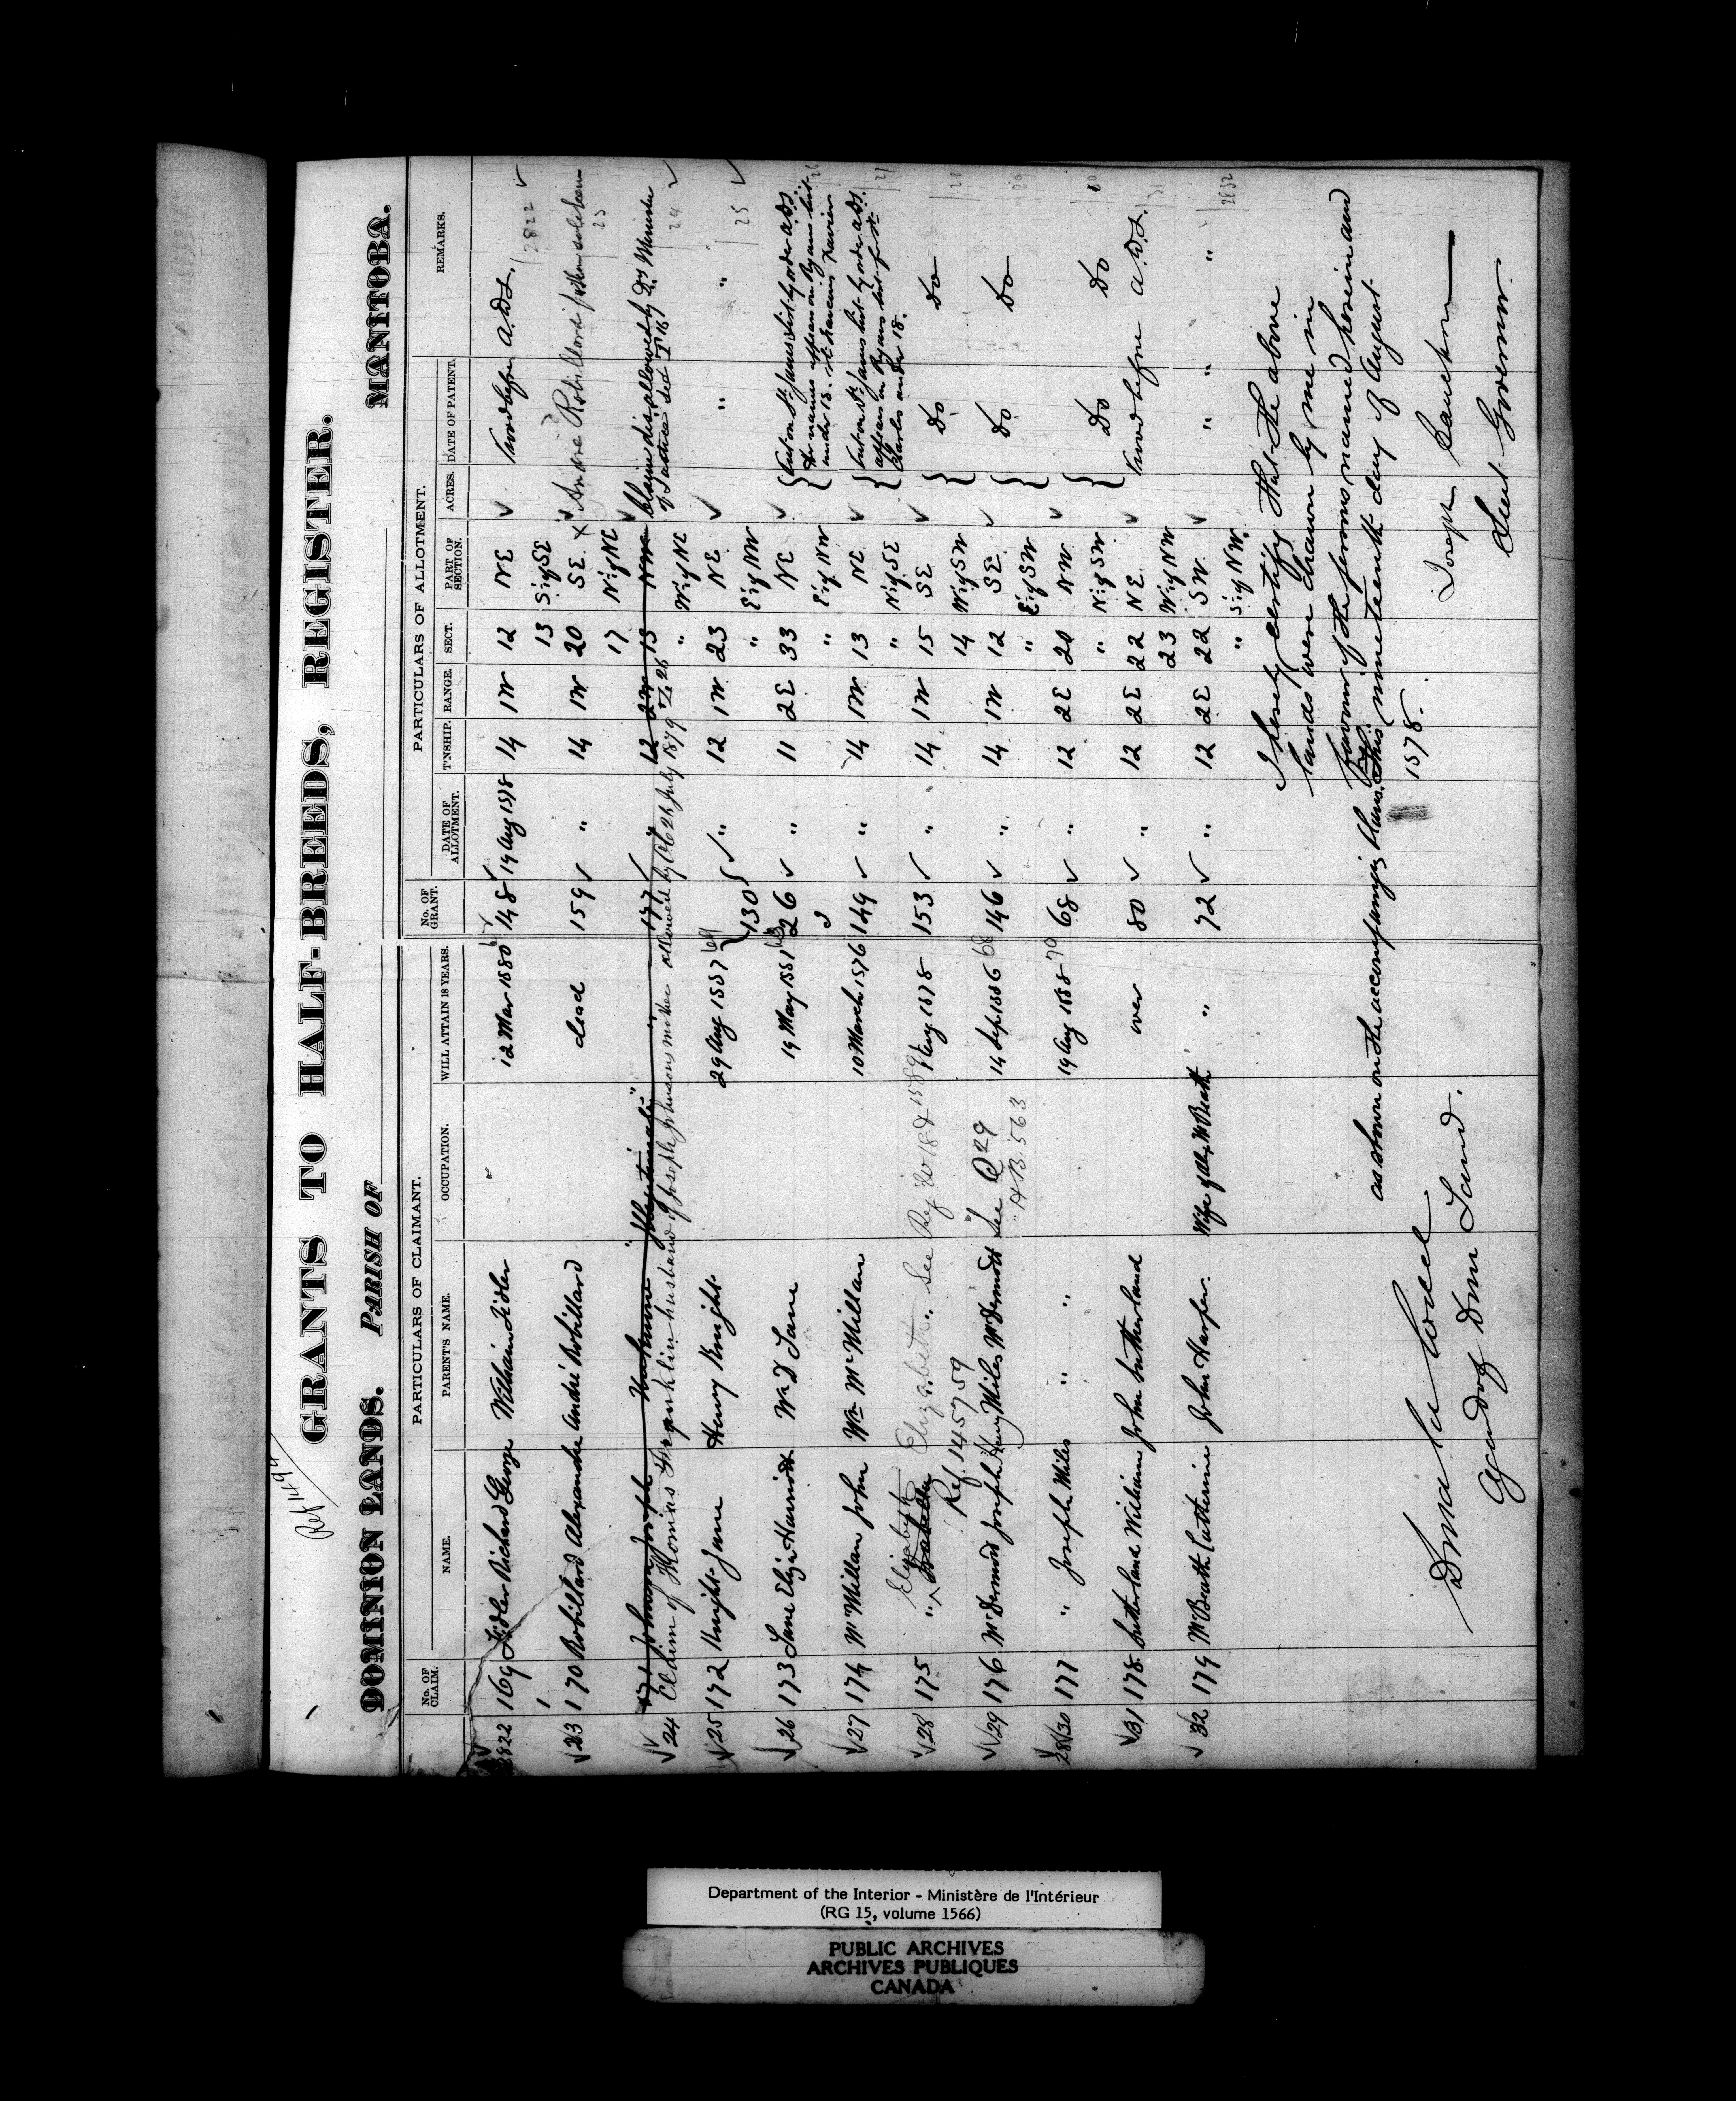 Ref 1494
GRANTS TO HALF-BREEDS, REGISTER.
DOMINION LANDS. PARISH OF MANITOBA.
PARTICULARS OF CLAIMANT. PARTICULARS OF ALLOTMENT.
No. OF CLAIM. NAME. PARENT'S NAME. OCCUPATION. WILL ATTAIN 18 YEARS. No. OF GRANT. DATE OF ALLOTMENT. T'NSHIP. RANGE. SECT. PART OF SECTION. ACRES. DATE OF PATENT. REMARKS.
2822 169 Fidler Richard George William Fidler 12 Mar 1880 148 19 Aug 1878 14 1W 12 NE A.D.L.
13 S½ of SE 2822
23 170 Robillard Alexandre André Robillard dead 159 " 14 1W 20 SE X Andre Robillard father sole heir
17 N½ of NE 23
24 171 Johnson Joseph Unknown "Illegitimate" " 147 " 12 2W 13 NW Claim disallowed by Dy Minister
Claim of Thomas Franklin husband of Joseph Johnsons mother allowed by 26 July 1879 " W½ of NE of Justice 24
25 172 Knight Jane Henry Knight 29 Aug 1887 130 " 12 1W 23 NE " "
" E½ of NW 25
26 173 Lane Eliza Harriott Wm D Lane 19 May 1881 26 " 11 2E 33 NE Put on St James list by order A.D.L.
" E½ of NW Her names appear on Ryans list
under 18. St Francois Xavier 26
27 174 McMillan John Wm McMillan 10 March 1876 149 " 14 1W 13 NE Put on St James list by order A.D.L.
" N½ of SE appears on Ryans list for St
Charles under 18. 27
28 175 " Elizabeth Isabella Elizabeth " See Reg 1589 1 Aug 1878 153 " 14 1W 15 SE Do Do
Ref. 145759 14 W½ of SW 28
29 176 McDermott Joseph Henry Miles McDermott See Q 29 14 Sep 1886 146 " 14 1W 12 SE Do Do
H.B. 563 " E½ of SW 29
2830 177 " Joseph Miles " " 19 Aug 1888 68 " 12 2E 20 NW Do Do
" N½ of SW 30
31 178 Sutherland William John Sutherland over 80 " 12 2E 22 NE A.D.L.
23 W½ of NW 31
32 179 McBeath Catherine John Harper Wife of Alex McBeath " 72 " 12 2E 22 SW " " "
" S½ of NW. 2832
I hereby certify that the above
lands were drawn by me in
favour of the persons named herein and
as shown on the accompanying plans this nineteenth day of August
1878.
Joseph Cauchon
Lieut Governor.
Donald Codd
Agent of Dom Land.
Department of the Interior - Ministère de l'Intérieur
(RG 15, volume 1566)
PUBLIC ARCHIVES
ARCHIVES PUBLIQUES
CANADA